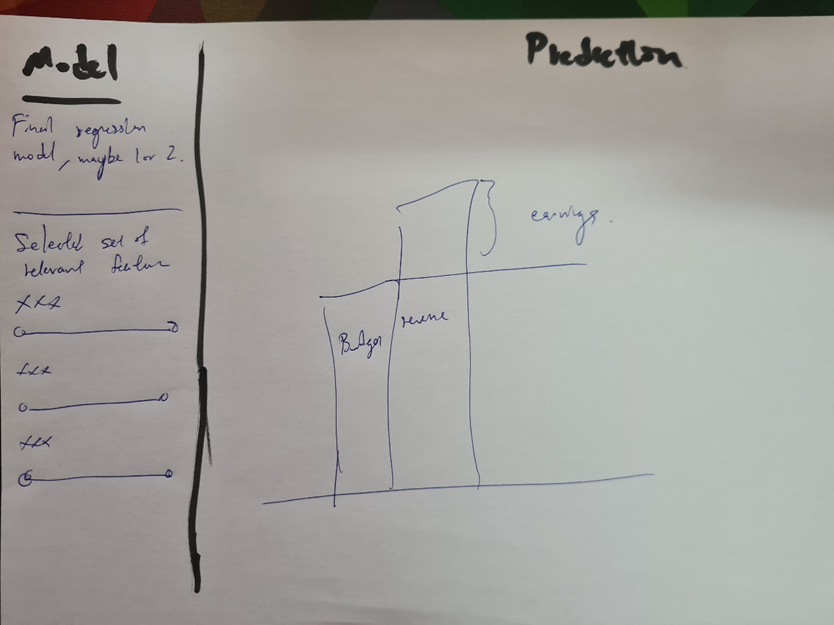 Model
Final regression
model, maybe 1 or 2.
Selected set of
relevant feature
xxx
xxx
xxx
Prediction
earnings.
Budget
revenue